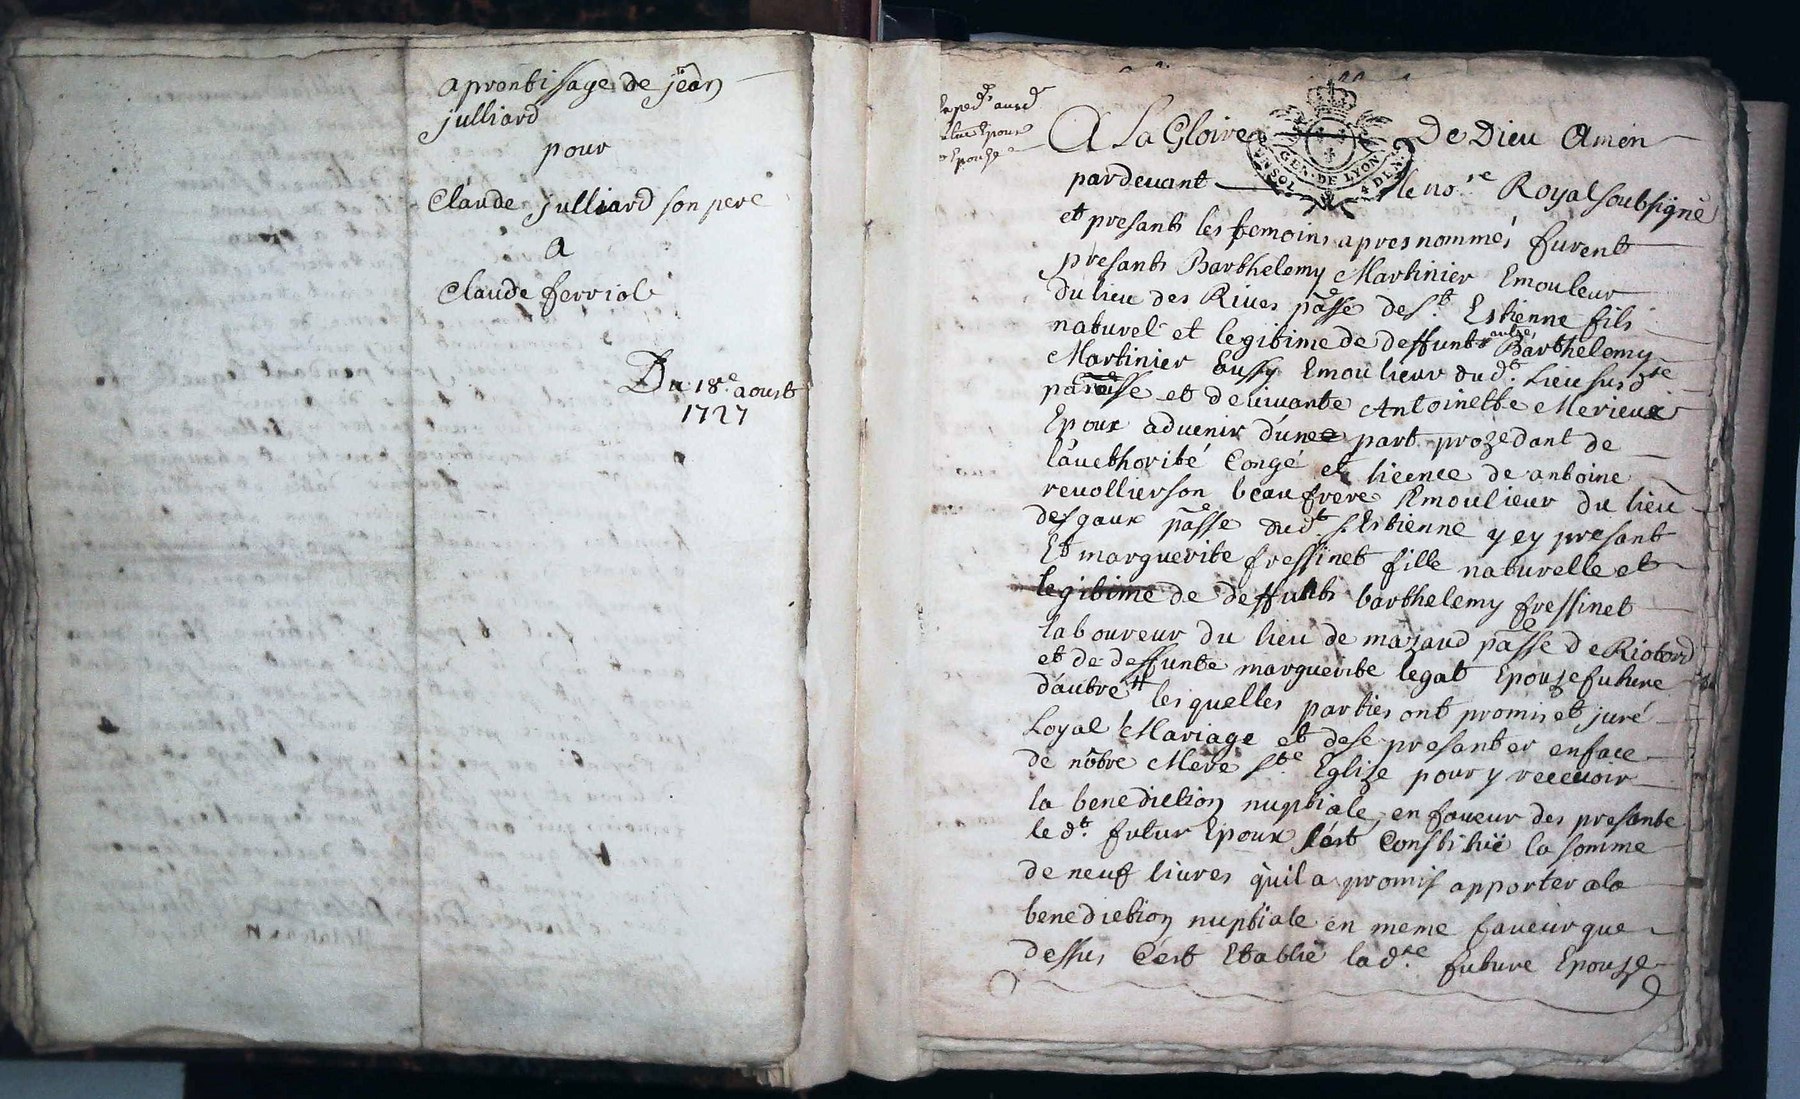 aprontissage de jean
julliard
pour
Claude julliard son pere
a
Claude ferriol
Du 18e aoust
1727
A La Gloire De Dieu Amen
GEN. DE LYON
pardevant le nore Royal soubsigné
et presants les temoins apres nommés furent
presants Barthelemy Martinier Emouleur
du lieu des Rives passe de St. Estienne fils
naturel et legitime de deffunt autre Barthelemy
Martinier aussy Emoulieur dudt. lieu susdte
paroisse et de vivante Antoinette Merieux
Epoux advenir d'une part prozedant de
l'aucthorité Congé et licence de antoine
revollier son beaufrere Emoulieur du lieu
des gaux passe dudt. st Estienne y ey presant
Et marguerite fressinet fille naturelle et
legitime de deffunts barthelemy fressinet
laboureur du lieu de mazaud passe de Riotord
et de deffunte marguerite legat Epouze future
d'autre lesquelles parties ont promis et juré
Loyal Mariage et de se presanter en face
de nôtre Mere Ste Eglize pour y recevoir
la benediction nuptiale, en faveur des presante
le dt. futur Epoux s'est Constitüé la somme
de neuf livres qu'il a promis apporter a la
benediction nuptiale en meme faveur que
dessus C'est Etablie la dte. future Epouze